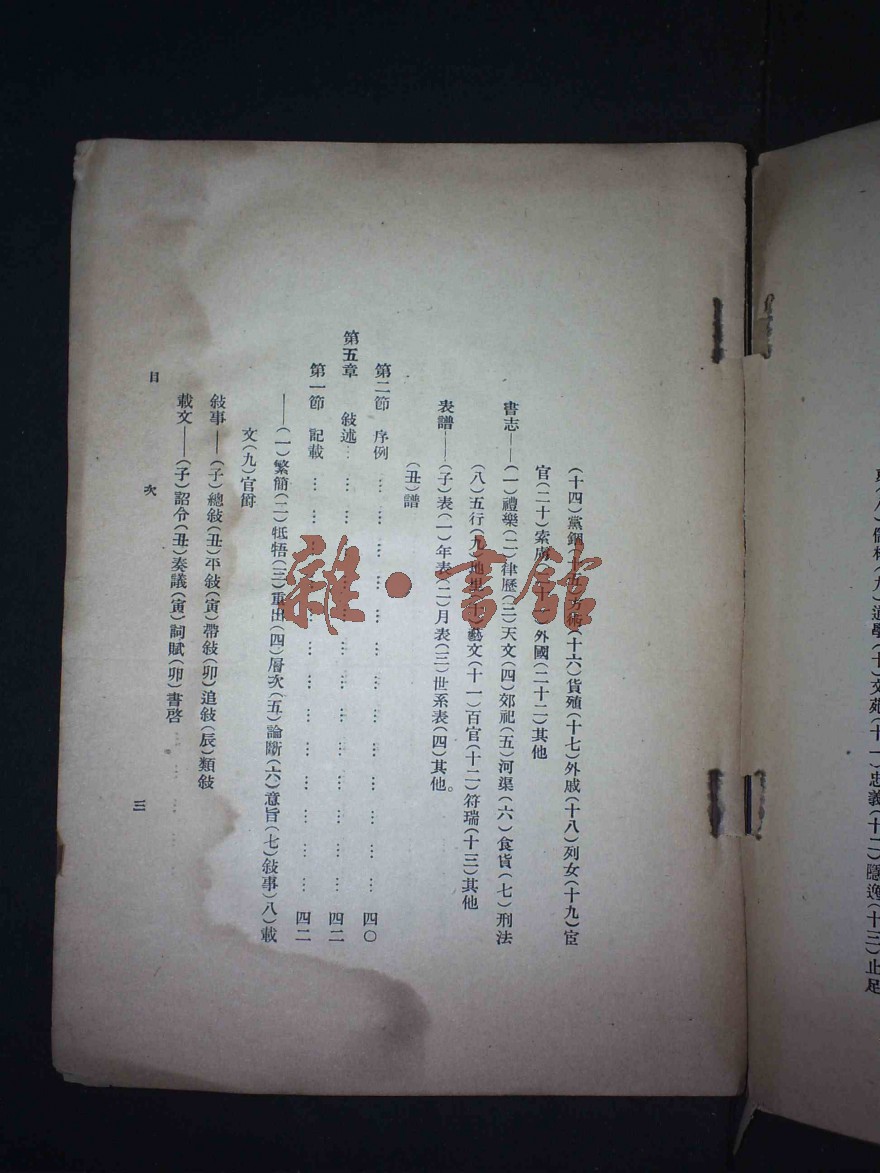 (八)儒林(九)道學(十)文苑(十一)忠義(十二)隱逸(十三)止足
(十四)黨錮(十五)方術(十六)貨殖(十七)外戚(十八)列女(十九)宦
官(二十)索虜(二十一)外國(二十二)其他
書志——(一)禮樂(二)律歷(三)天文(四)郊祀(五)河渠(六)食貨(七)刑法
(八)五行(九)地里(十)藝文(十一)百官(十二)符瑞(十三)其他
表譜——(子)表(一)年表(二)月表(三)世系表(四)其他。
(丑)譜
第二節 序例 … … … … … … … … … … … … 四〇
第五章 敍述… … … … … … … … … … … … 四二
第一節 記載 … … … … … … … … … … … … 四二
——(一)繁簡(二)牴牾(三)重出(四)層次(五)論斷(六)意旨(七)敍事(八)載
文(九)官爵
敍事——(子)總敍(丑)平敍(寅)帶敍(卯)追敍(辰)類敍
載文——(子)詔令(丑)奏議(寅)詞賦(卯)書啓
目 次 三
雜·書館